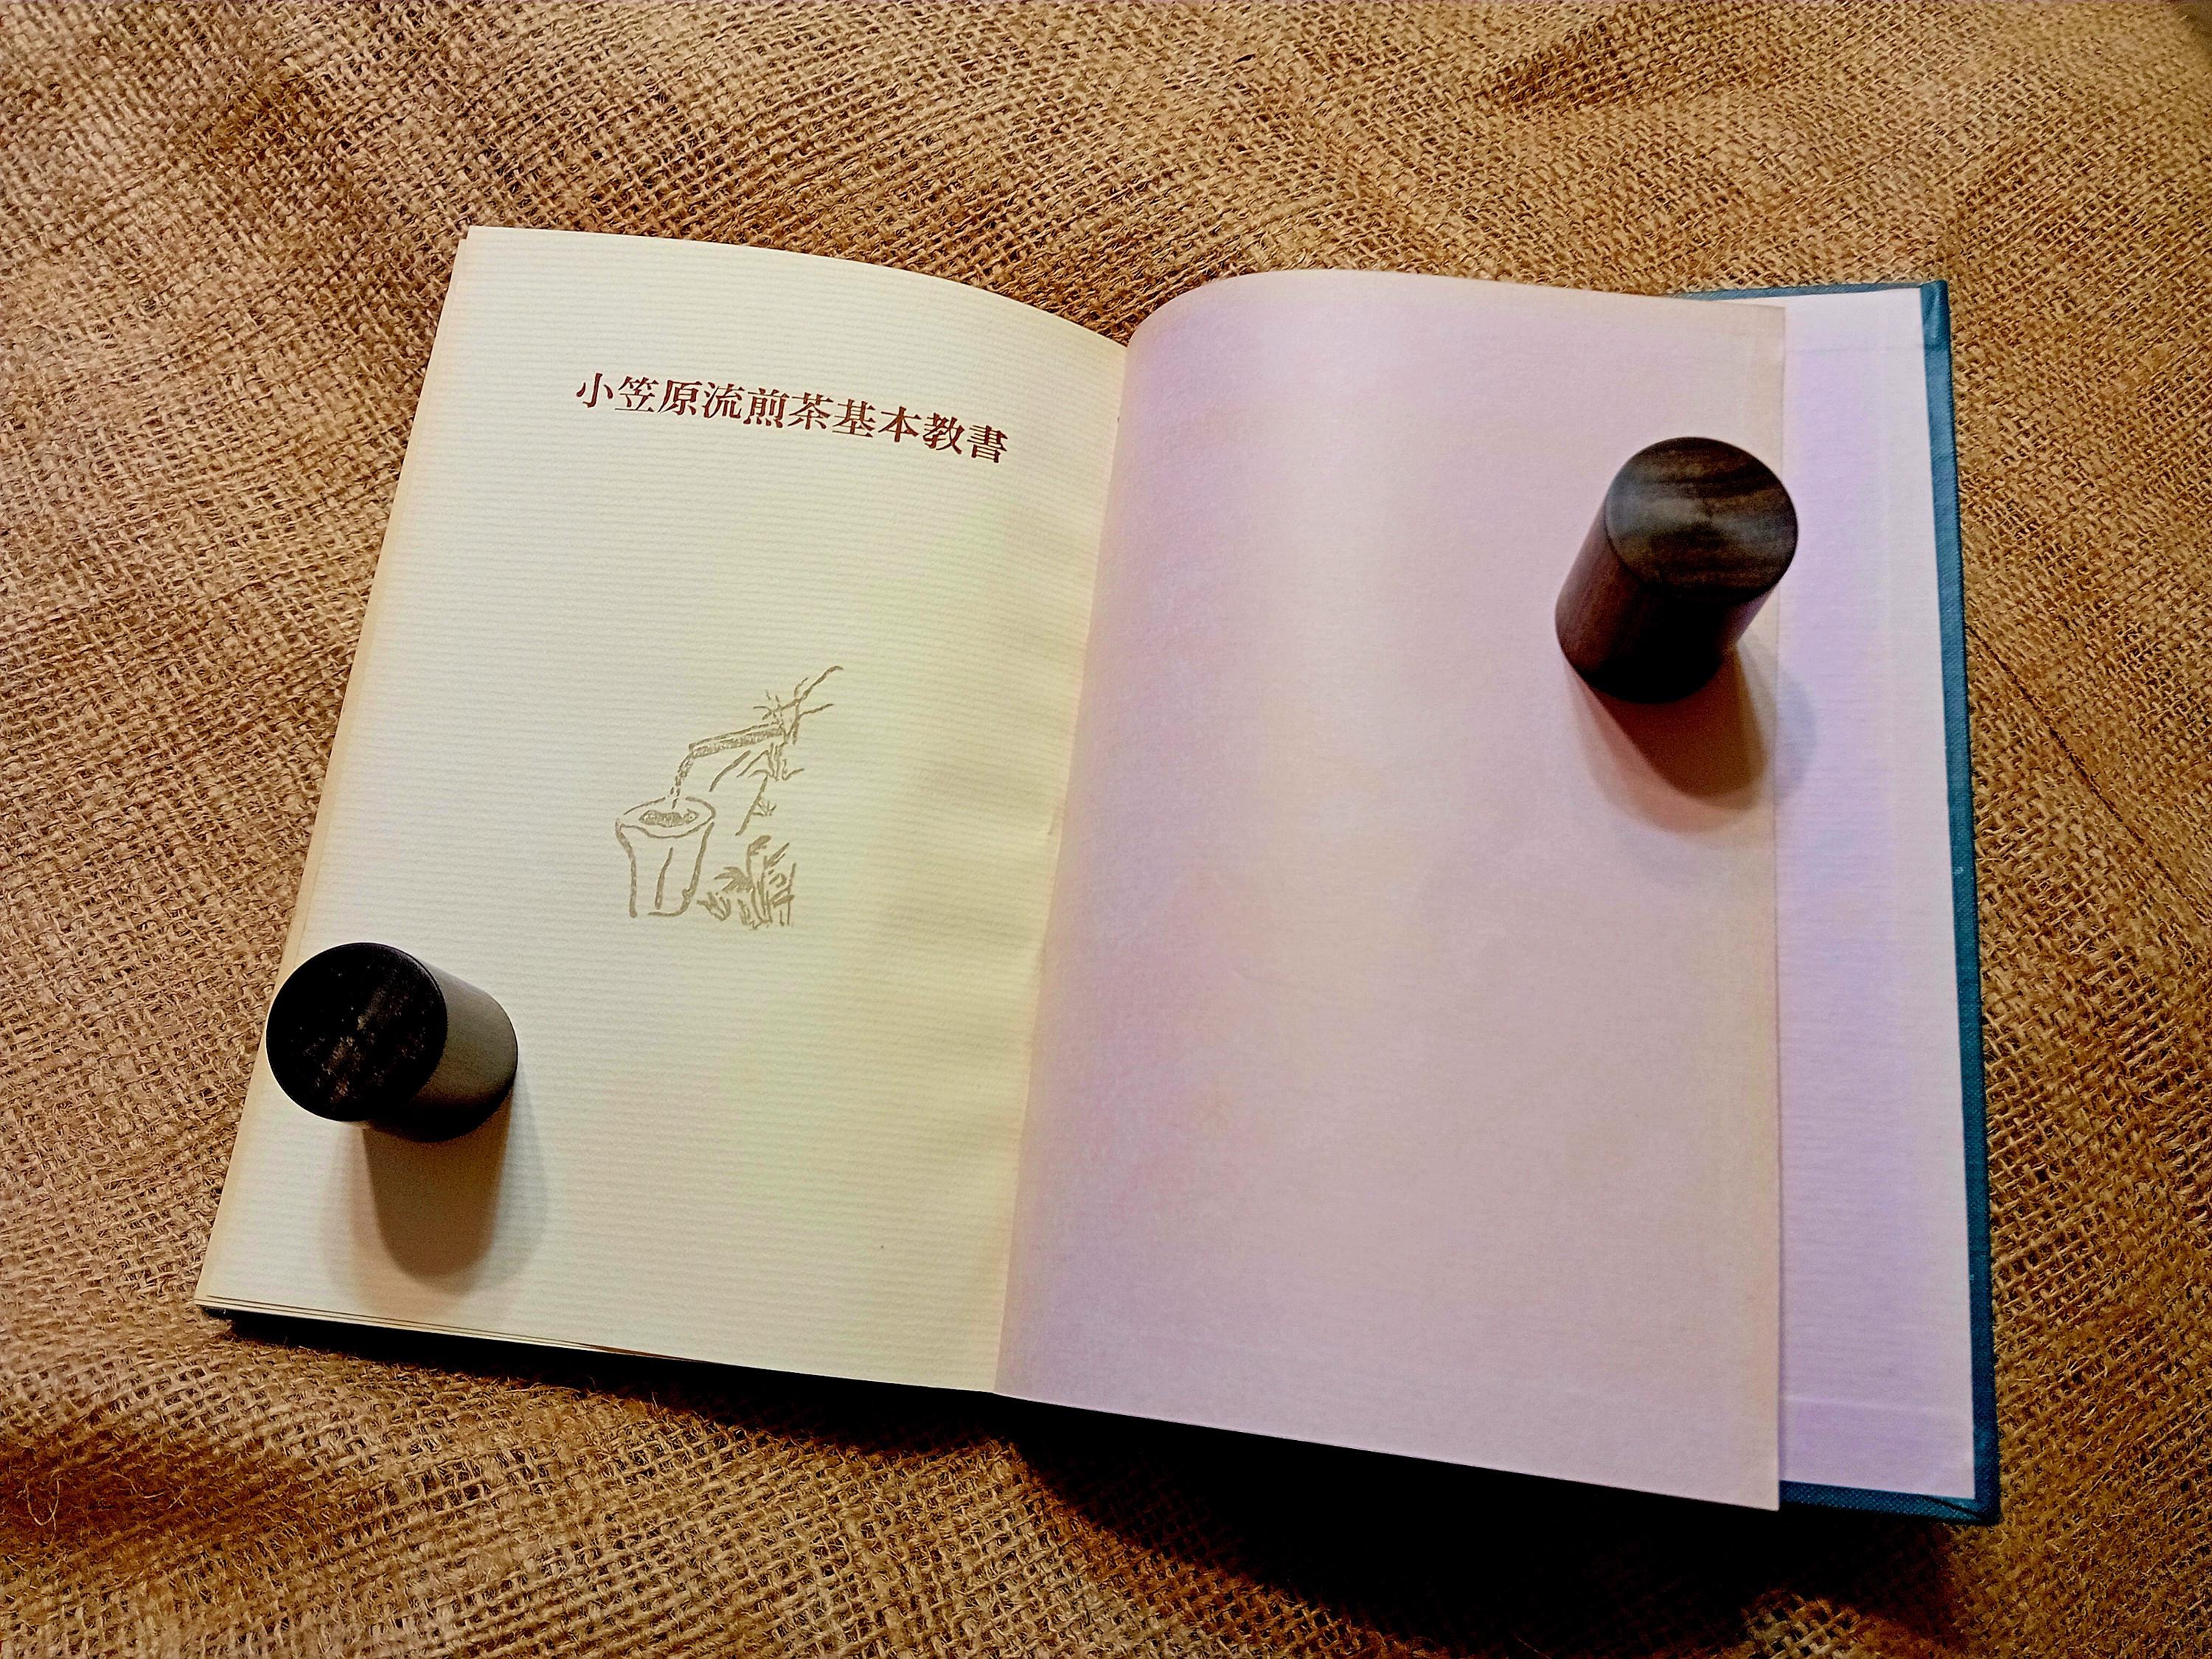 小笠原流煎茶基本教書